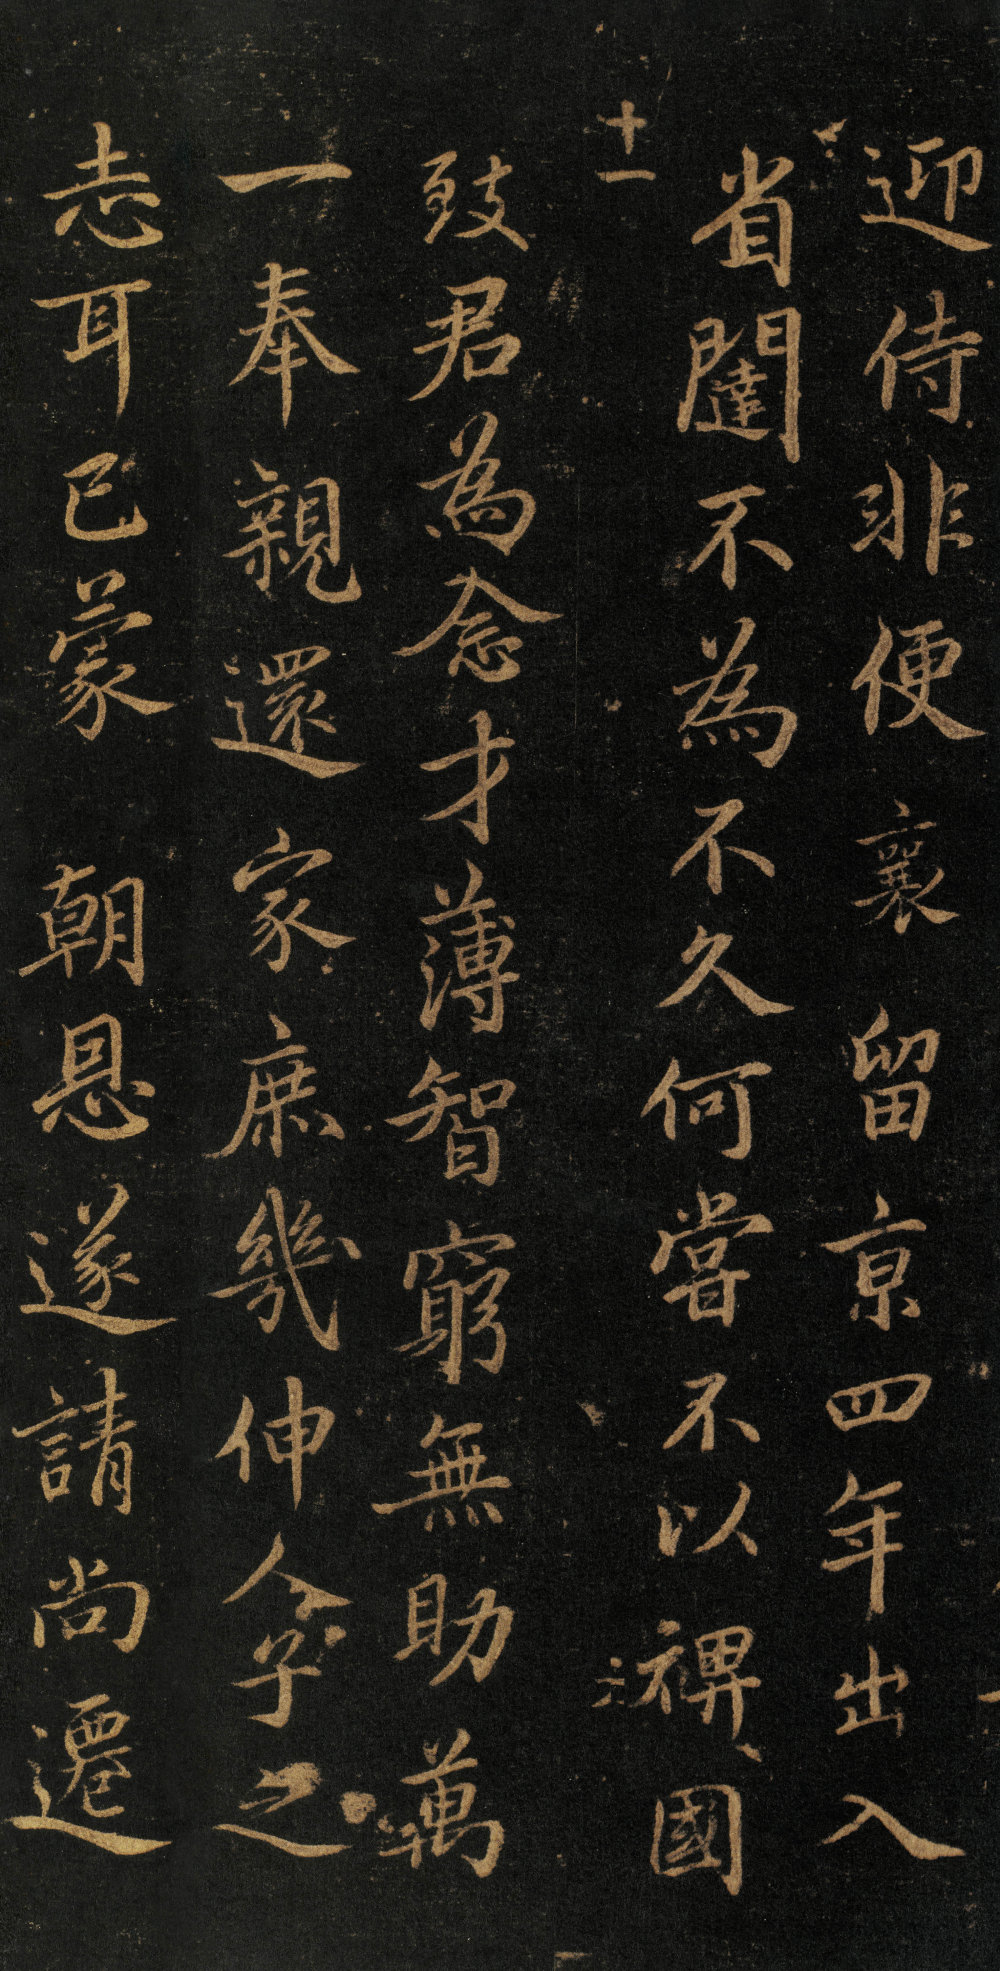 迎侍非便襄留京四年出入
省闥不為不久何嘗不以裨國
十一
致君為念才薄智窮無助萬
一奉親還家庶幾伸人子之
志耳已蒙 朝恩遂請尚遷